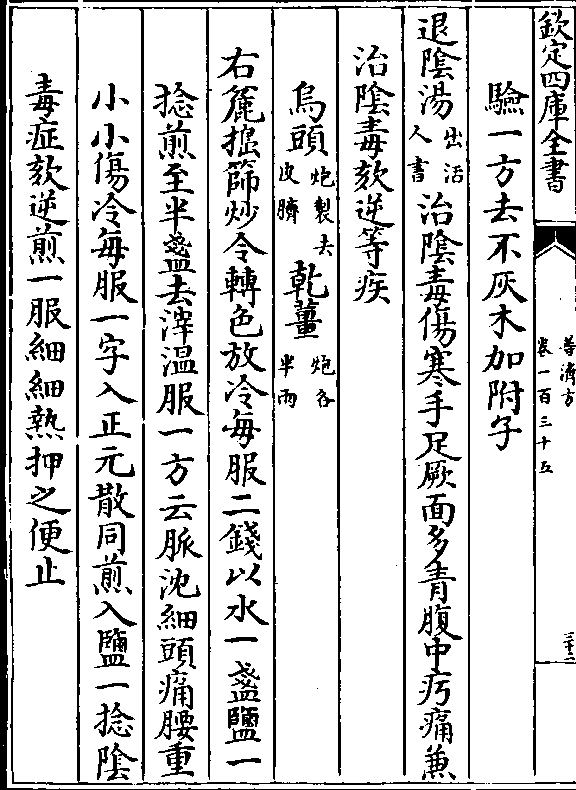 欽定四庫全書
普濟方
卷一百三十五
三十二
驗一方去不灰木加附子
退陰湯出活人書治陰毒傷寒手足厥面多青腹中㽱痛兼
治陰毒欬逆等疾
烏頭炮製去皮臍 乾薑炮各半兩
右麄搗篩炒令轉色放冷每服二錢以水一盞鹽一
捻煎至半盞去滓温服一方云脈沈細頭痛腰重
小小傷冷每服一字入正元散同煎入鹽一捻陰
毒症欬逆煎一服細細熱押之便止